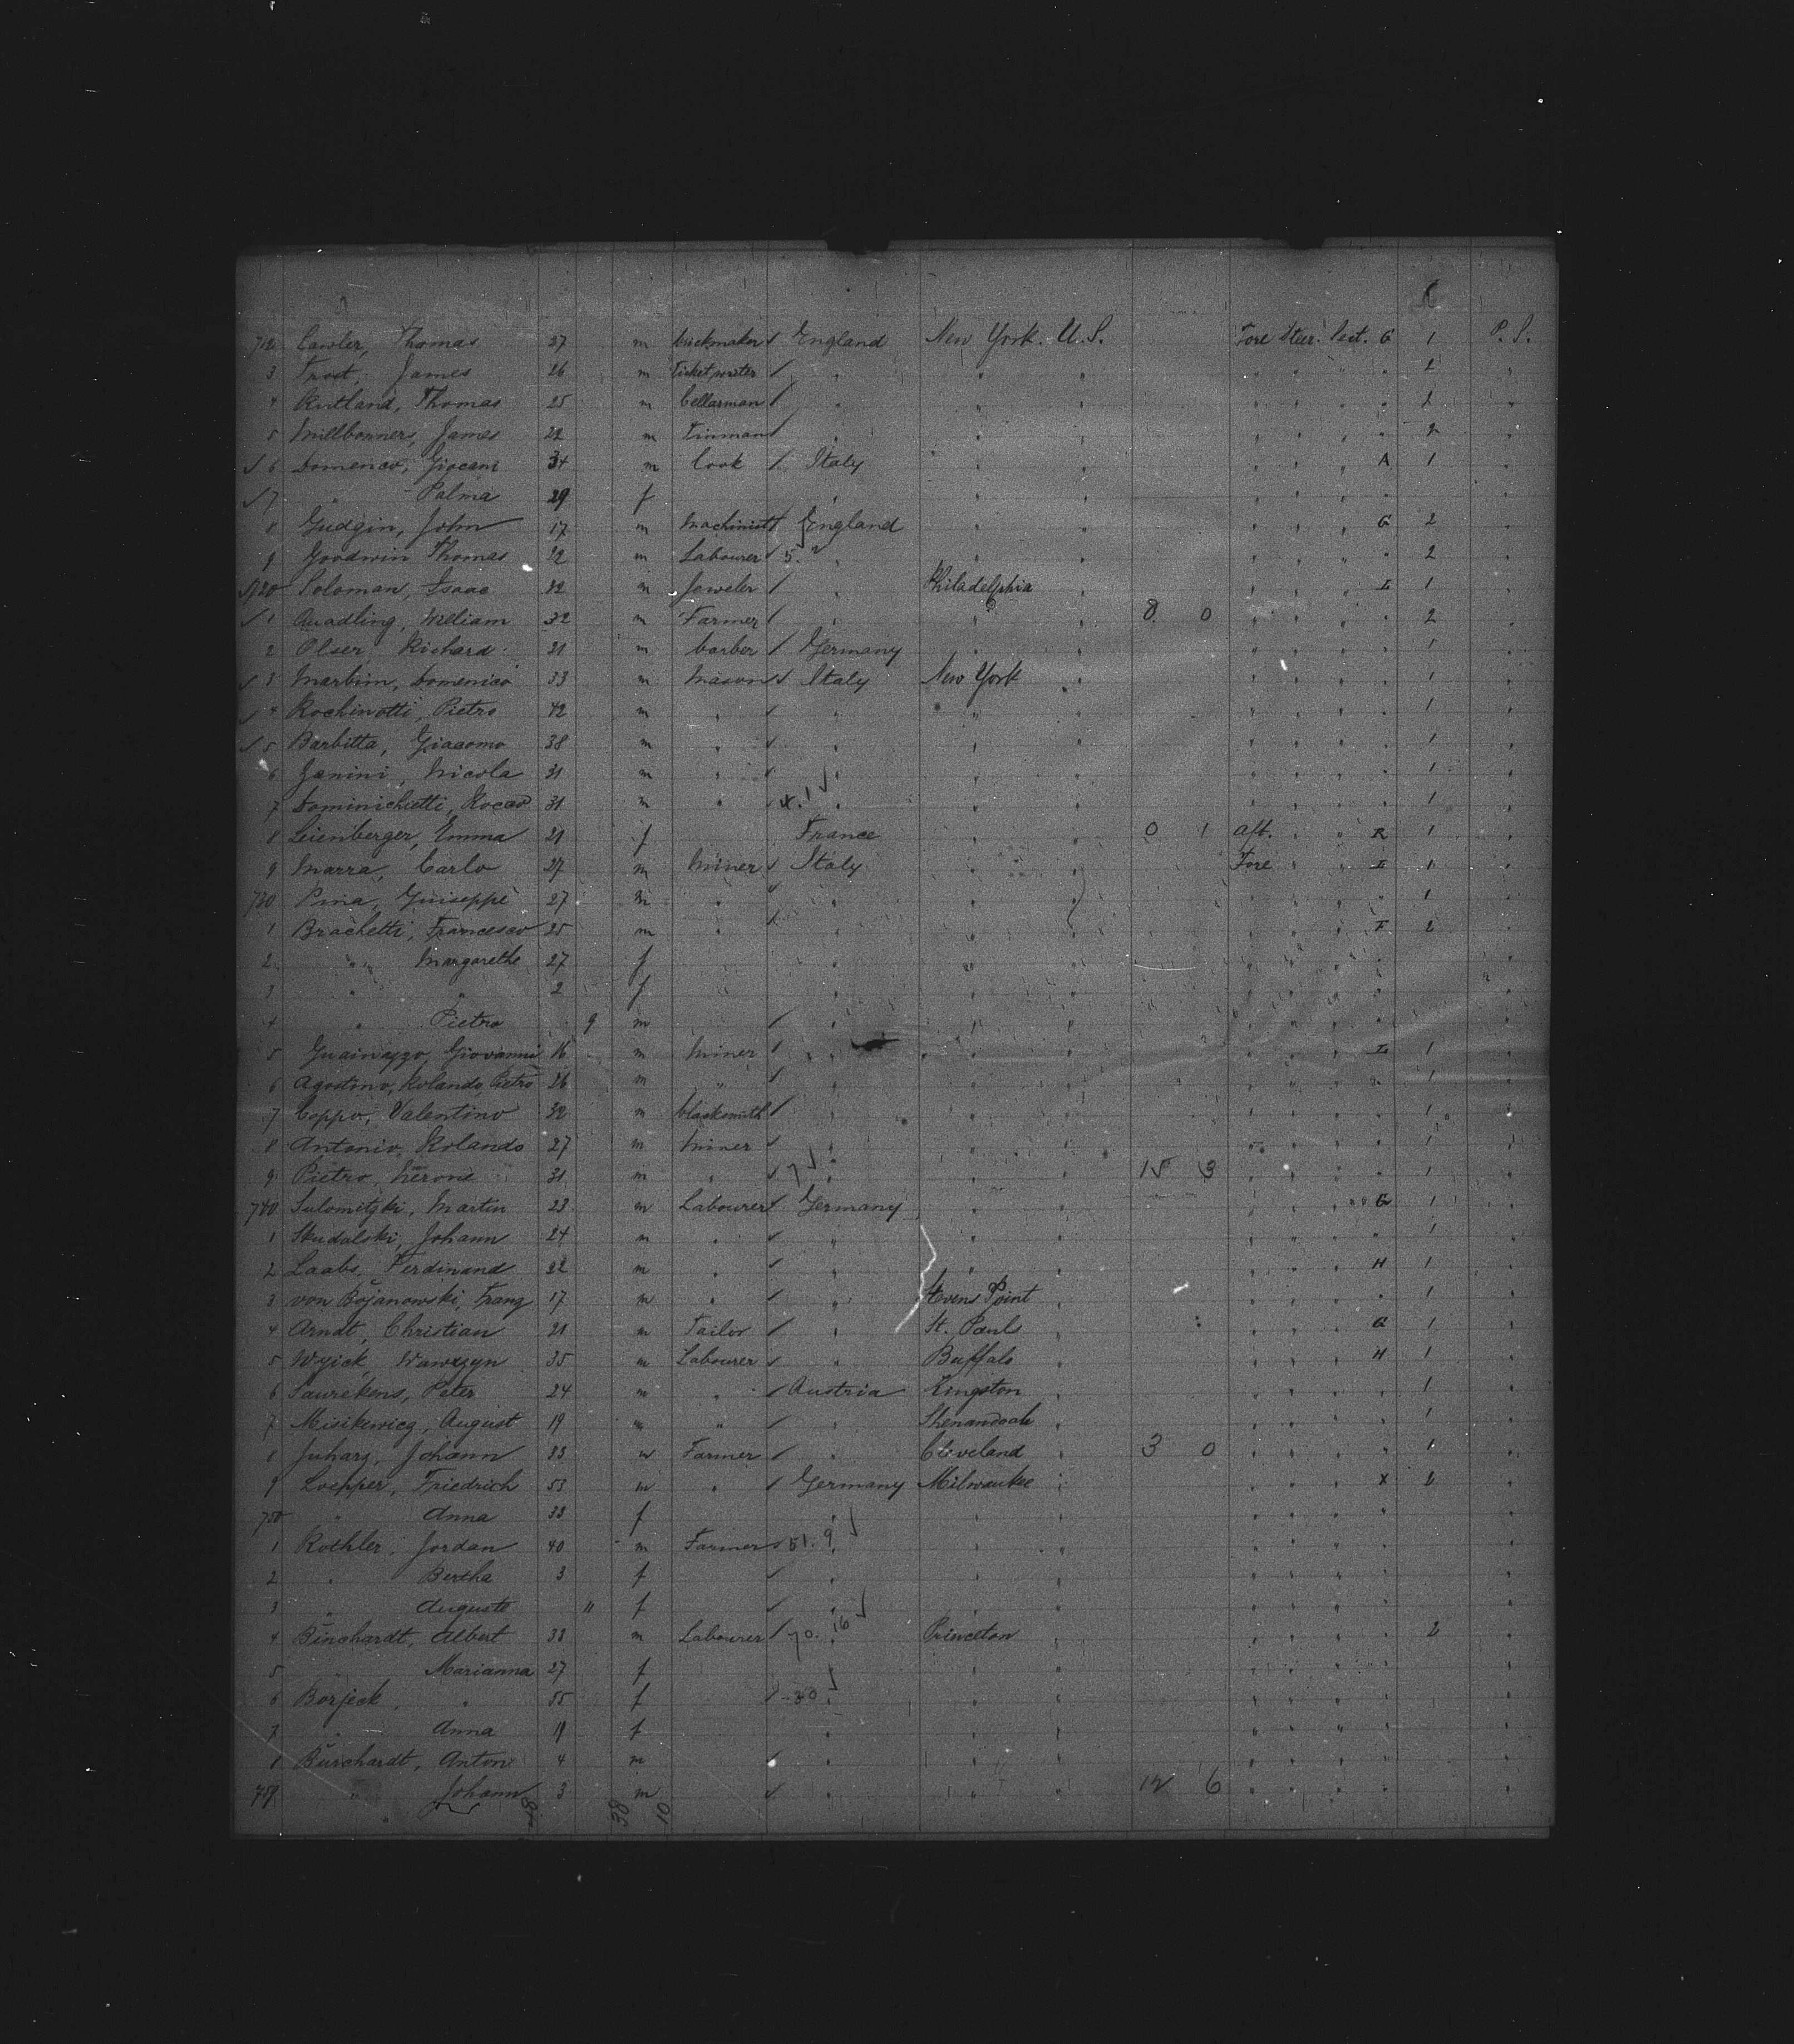 712 Cawler, Thomas 27 m brickmaker England New York. U.S. Fore Steer. Sect. G 1 P. S.
3 Frost, James 26 m Ticket writer " " " 2 "
4 Rutland, Thomas 25 m Cellarman " " " 2 "
5 Millbanners, James 22 m Tinman " " " 2 "
6 Domenico, Giocani 34 m Cook Italy " " A 1 "
7 " Palma 29 f " " "
8 Gudgin, John 17 m Machinist England " " G 2 "
9 Goodwin Thomas 22 m Labourer 5. " " 2 "
720 Soloman, Isaac 32 m Jeweler " Philadelphia " I 1 "
1 Quadling, William 32 m Farmer " " 8. 0 " 2 "
2 Olser, Richard 21 m barber Germany " " 1 "
3 Marbim, Domenico 33 m Mason Italy New York " 1 "
4 Rochinotti, Pietro 42 m " " " 1 "
5 Barbitta, Giacomo 38 m " " " 1 "
6 Janini, Nicola 31 m " " " 1 "
7 Dominichetti, Rocco 31 m " 4. 1 " " 1 "
8 Leienberger, Emma 21 f France " 0 1 Aft. " R 1 "
9 Marra, Carlo 27 m Miner Italy " Fore " I 1 "
730 Pina, Guiseppe 27 m " " " 1 "
1 Brachetti, Francesco 25 m " " " F 2 "
2 " Margarethe 27 f " " "
3 " " 2 f " " "
4 " Pietro 9 m " " "
5 Guainazzo, Giovanni 16 m Miner " " I 1 "
6 Agostino, Rolando, Pietro 26 m " " " 1 "
7 Coppo, Valentino 32 m blacksmith " " 1 "
8 Antonio, Rolando 27 m Miner " " 1 "
9 Pietro, 31 m " 7 " 15 3 " 1 "
740 Sulomitzki, Martin 23 m Labourer Germany " " G 1 "
1 Skudalski, Johann 24 m " " " 1 "
2 Laabs, Ferdinand 22 m " " " H 1 "
3 von Bojanowski, Franz 17 m " " Stevens Point " 1 "
4 Arndt, Christian 21 m Tailor " St. Pauls " G 1 "
5 Wyick, Wawrzyn 35 m Labourer " Buffalo " H 1 "
6 Saurekens, Peter 24 m " Austria Kingston " 1 "
7 Misikewicz, August 19 m " " Shenandoah " 1 "
8 Juharz, Johann 33 m Farmer " Cleveland 3 0 " 1 "
9 Loepper, Friedrich 53 m " Germany Milwaukee " X 2 "
750 " Anna 33 f " " "
1 Rothler, Jordan 40 m Farmer 51. 9 " "
2 " Bertha 3 f " " "
3 " Auguste 11 f " " "
4 Binchardt, Albert 33 m Labourer 70. 16 Princeton " 2 "
5 " Marianna 27 f " " "
6 Borjeck, " 55 f 30 " "
7 " Anna 19 f " " "
8 Burchardt, Anton 4 m " " "
759 " Johann 3 m " " 12 6 " "
38 10